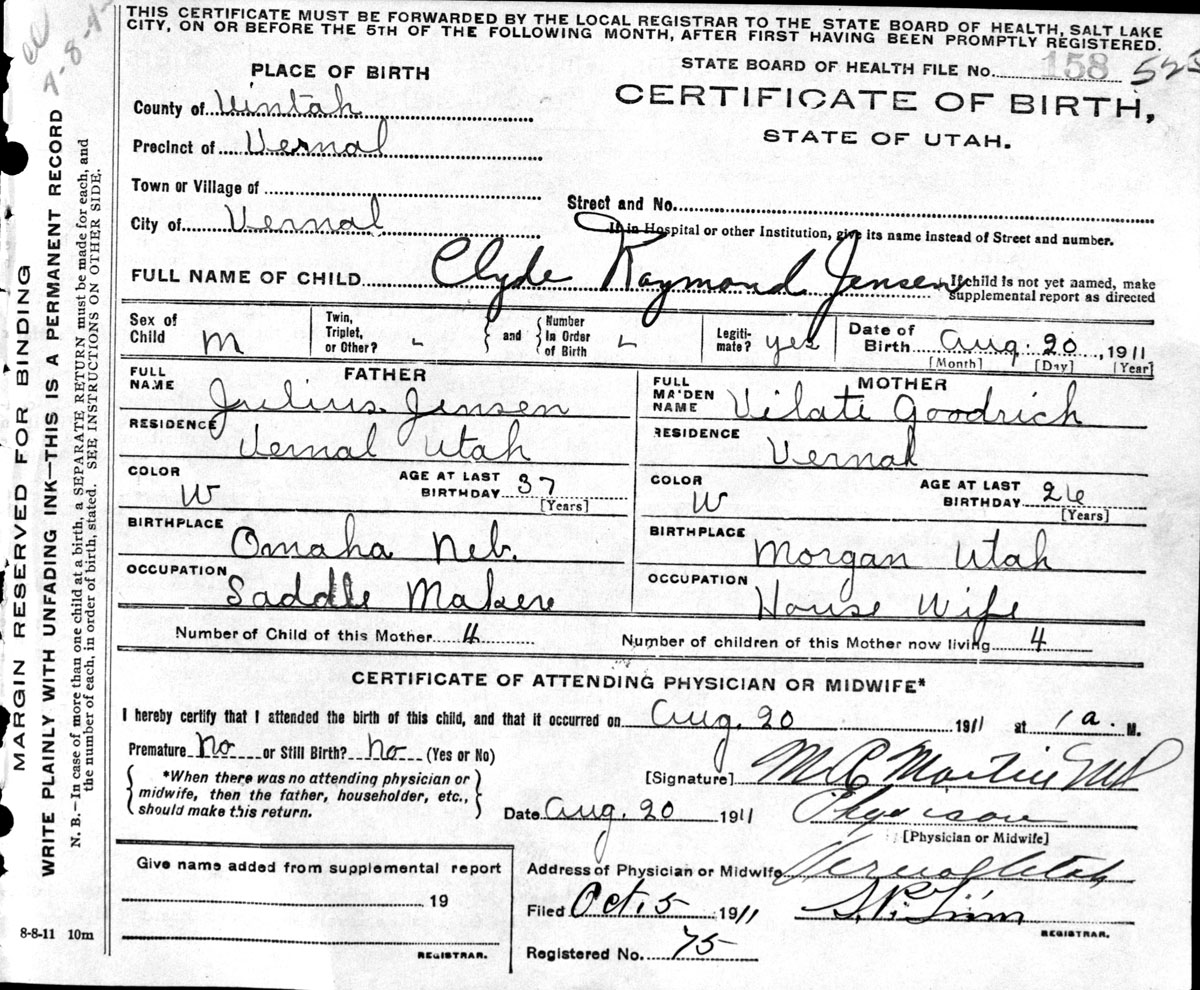 THIS CERTIFICATE MUST BE FORWARDED BY THE LOCAL REGISTRAR TO THE STATE BOARD OF HEALTH, SALT LAKE
CITY, ON OR BEFORE THE 5TH OF THE FOLLOWING MONTH, AFTER FIRST HAVING BEEN PROMPTLY REGISTERED.
PLACE OF BIRTH
STATE BOARD OF HEALTH FILE No. 158 523
County of Uintah
CERTIFICATE OF BIRTH,
STATE OF UTAH.
Precinct of Vernal
Town or Village of
Street and No.
City of Vernal
If in Hospital or other Institution, give its name instead of Street and number.
FULL NAME OF CHILD Clyde Raymond Jensen
If child is not yet named, make
supplemental report as directed
Sex of Child M
Twin, Triplet, or Other? -
and
Number In Order of Birth -
Legiti-mate? yes
Date of Birth Aug. 20, 1911
[Month] [Day] [Year]
FATHER
FULL NAME Julius Jensen
RESIDENCE Vernal Utah
COLOR W AGE AT LAST BIRTHDAY 37
[Years]
BIRTHPLACE Omaha Neb.
OCCUPATION Saddle Maker
MOTHER
FULL MA'DEN NAME Vilate Goodrich
RESIDENCE Vernal
COLOR W AGE AT LAST BIRTHDAY 26
[Years]
BIRTHPLACE Morgan Utah
OCCUPATION House Wife
Number of Child of this Mother 4 Number of children of this Mother now living 4
CERTIFICATE OF ATTENDING PHYSICIAN OR MIDWIFE*
I hereby certify that I attended the birth of this child, and that it occurred on Aug. 20 1911 at 1 a. M.
Premature No or Still Birth? No (Yes or No)
*When there was no attending physician or
midwife, then the father, householder, etc.,
should make this return.
[Signature]
Date Aug. 20 1911 Physician
[Physician or Midwife]
Address of Physician or Midwife Vernal Utah
Filed Oct. 5 1911
REGISTRAR.
Registered No. 75
Give name added from supplemental report
19
REGISTRAR.
8-8-11 10m
MARGIN RESERVED FOR BINDING
WRITE PLAINLY WITH UNFADING INK—THIS IS A PERMANENT RECORD
N. B.—In case of more than one child at a birth, a SEPARATE RETURN must be made for each, and
the number of each, in order of birth, stated. SEE INSTRUCTIONS ON OTHER SIDE.